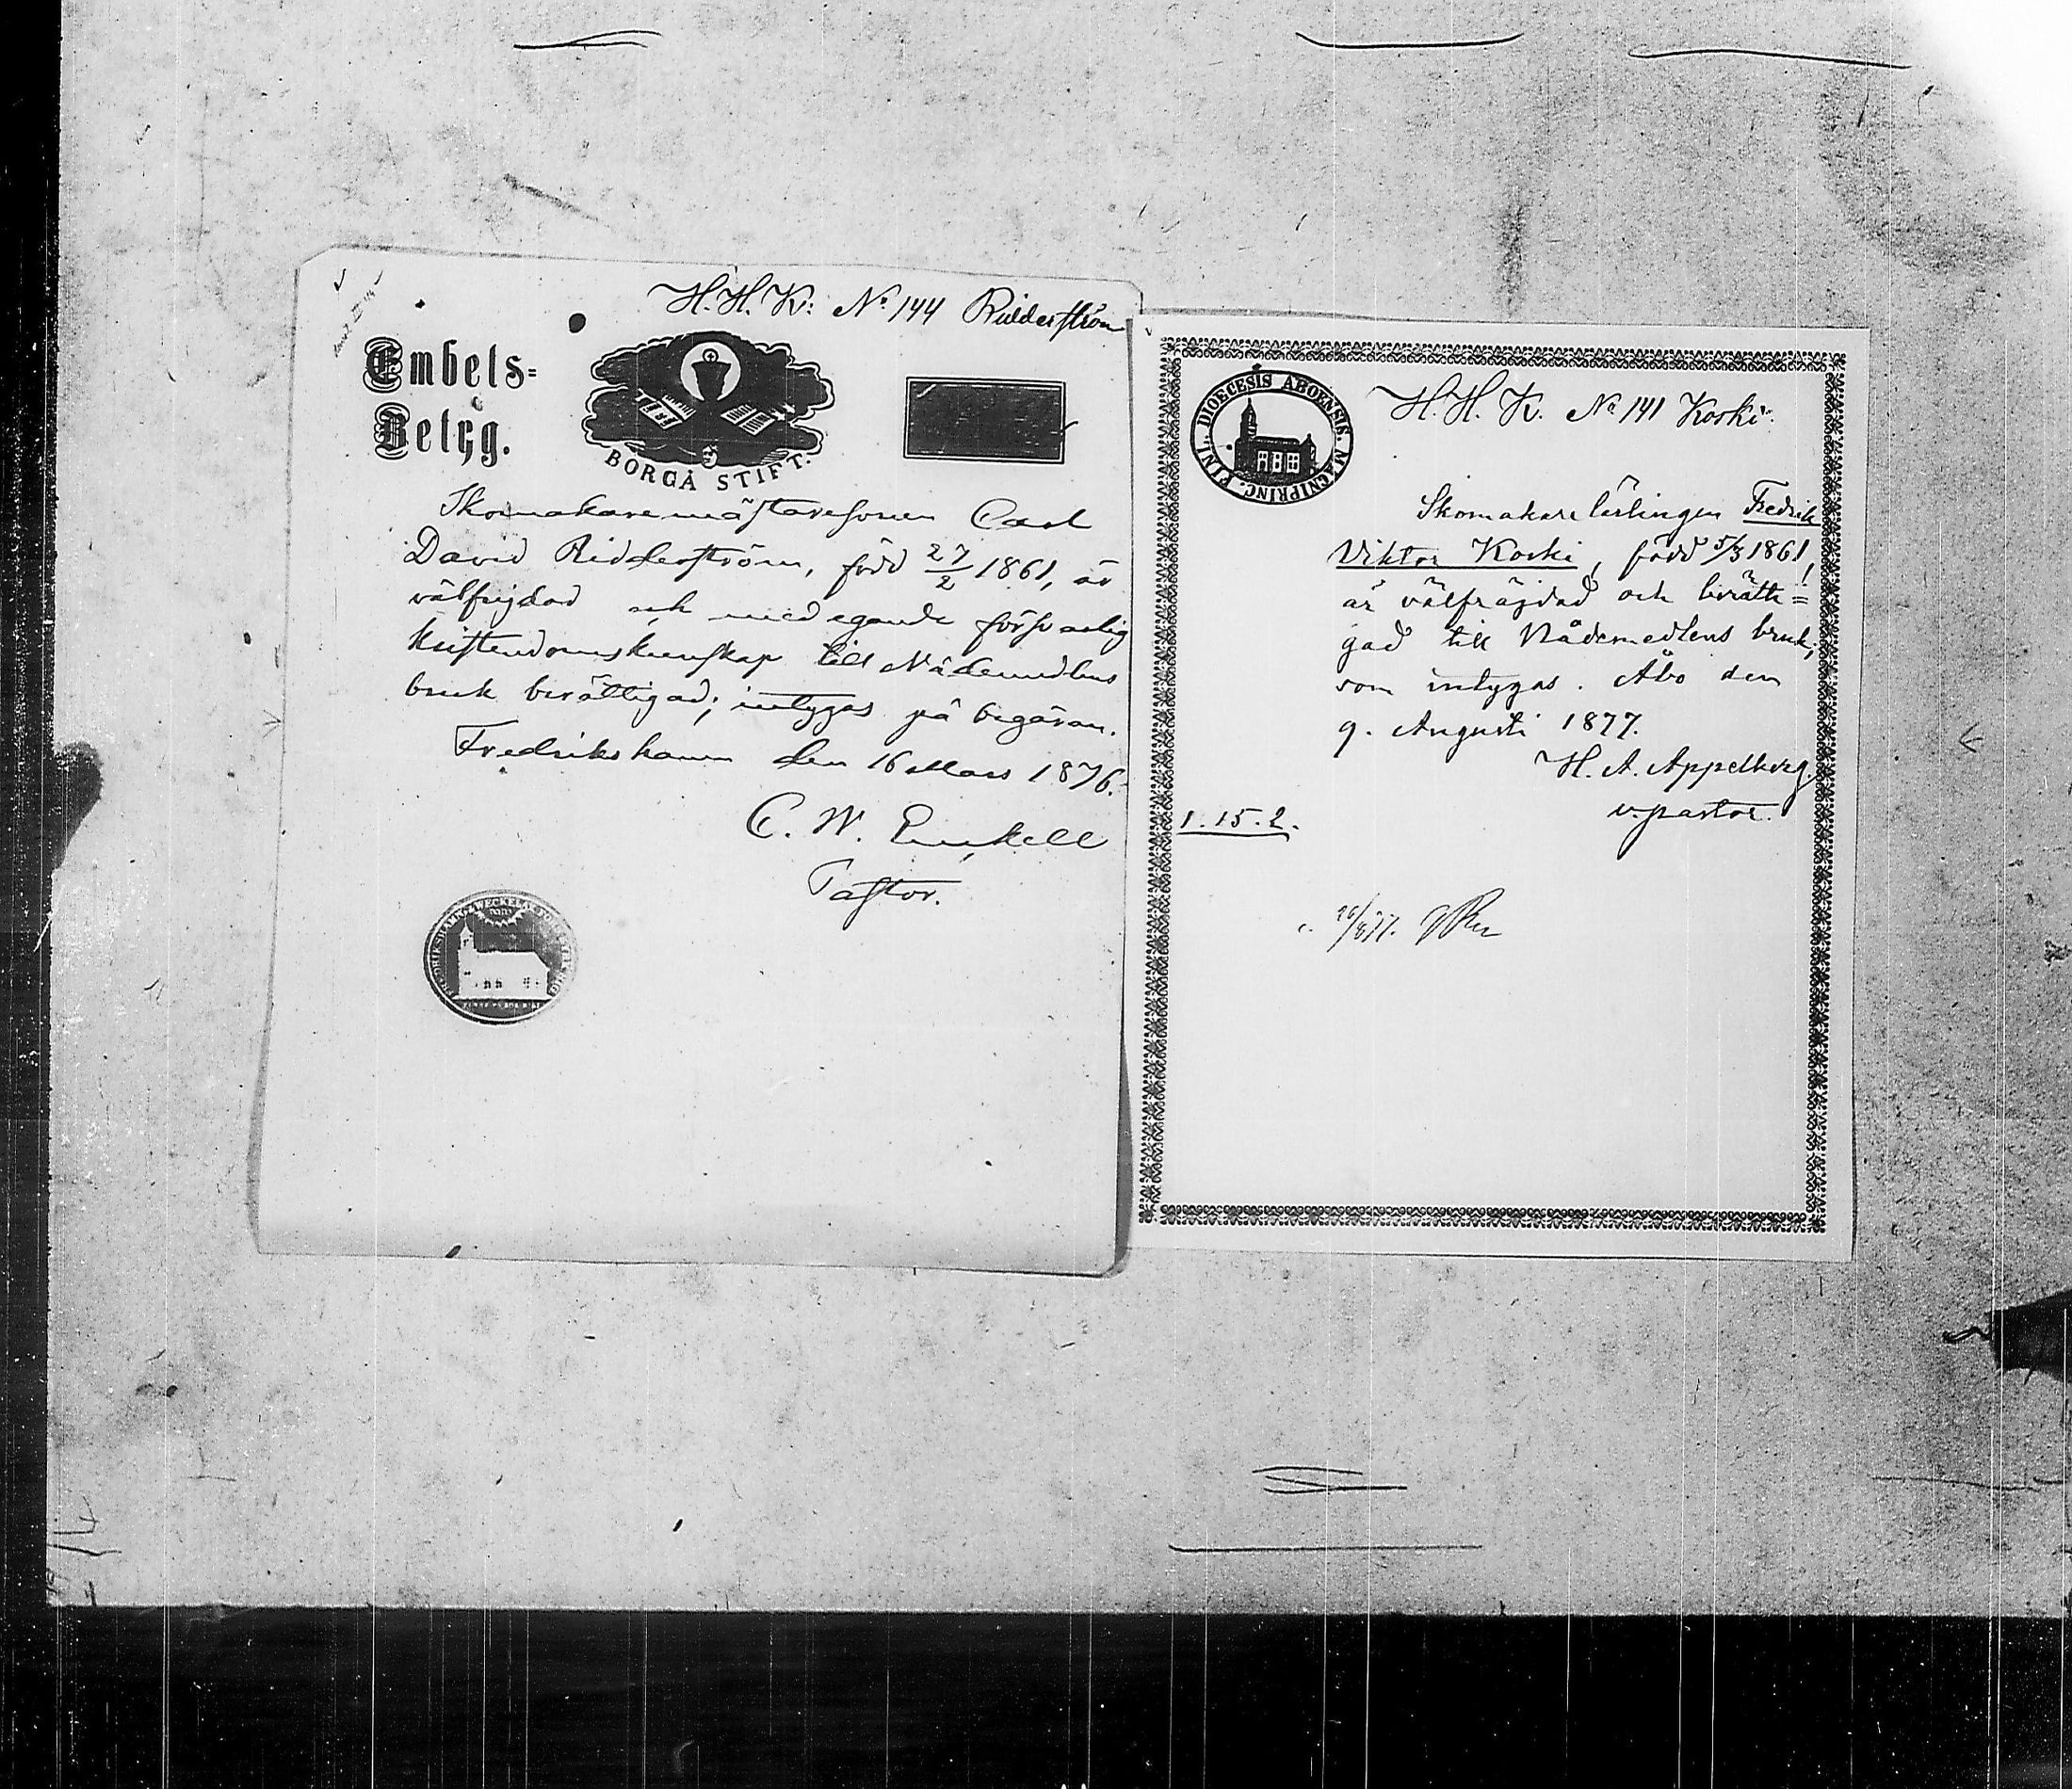 H. H. K: No 144 Ridderström
Embels-
Betyg.
BORGÅ STIFT.
Skomakaremästaresonen Carl
David Ridderström, född 27/2 1861, är
välfrejdad och med egande försvarlig
Kristendomskunskap till Nådemedlens
bruk berättigad; intygas på begäran.
Fredrikshamn den 16 Mars 1876.
C. W. Enckell
Pastor.
FINL. DIOECESIS ABOENSIS. MAGNIPRINC.
H. H. K. No 141 Koski.
Skomakare lärlingen Fredrik
Viktor Koski, född 5/3 1861,
är välfräjdad och berätti=
gad till Nådemedlens bruk;
som intygas. Åbo den
9. Augusti 1877.
H. A. Appelberg.
v. pastor.
1. 15. 2.